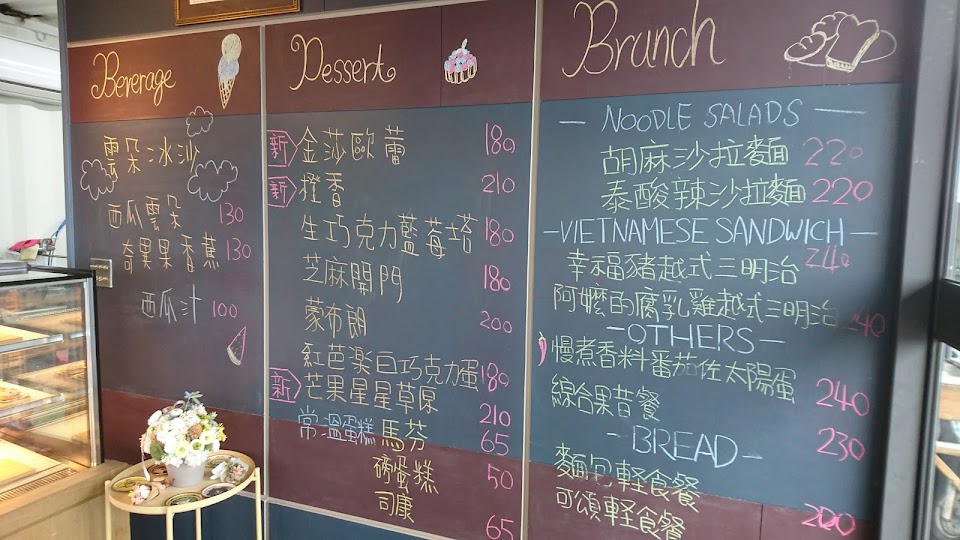 Beverage
雲朵冰沙
西瓜雲朵 130
奇異果香蕉 130
西瓜汁 100
Dessert
新 金莎歐蕾 180
新 橙香 210
生巧克力藍莓塔 180
芝麻開門 180
蒙布朗 200
紅芭樂白巧克力蛋 180
新 芒果星星草原 210
常溫蛋糕 馬芬 65
磅蛋糕 50
司康 65
Brunch
NOODLE SALADS
胡麻沙拉麵 220
泰酸辣沙拉麵 220
VIETNAMESE SANDWICH
幸福豬越式三明治 240
阿嬤的腐乳雞越式三明治 240
OTHERS
慢煮香料番茄佐太陽蛋 240
綜合果昔餐 230
BREAD
麵包輕食餐
可頌輕食餐 200